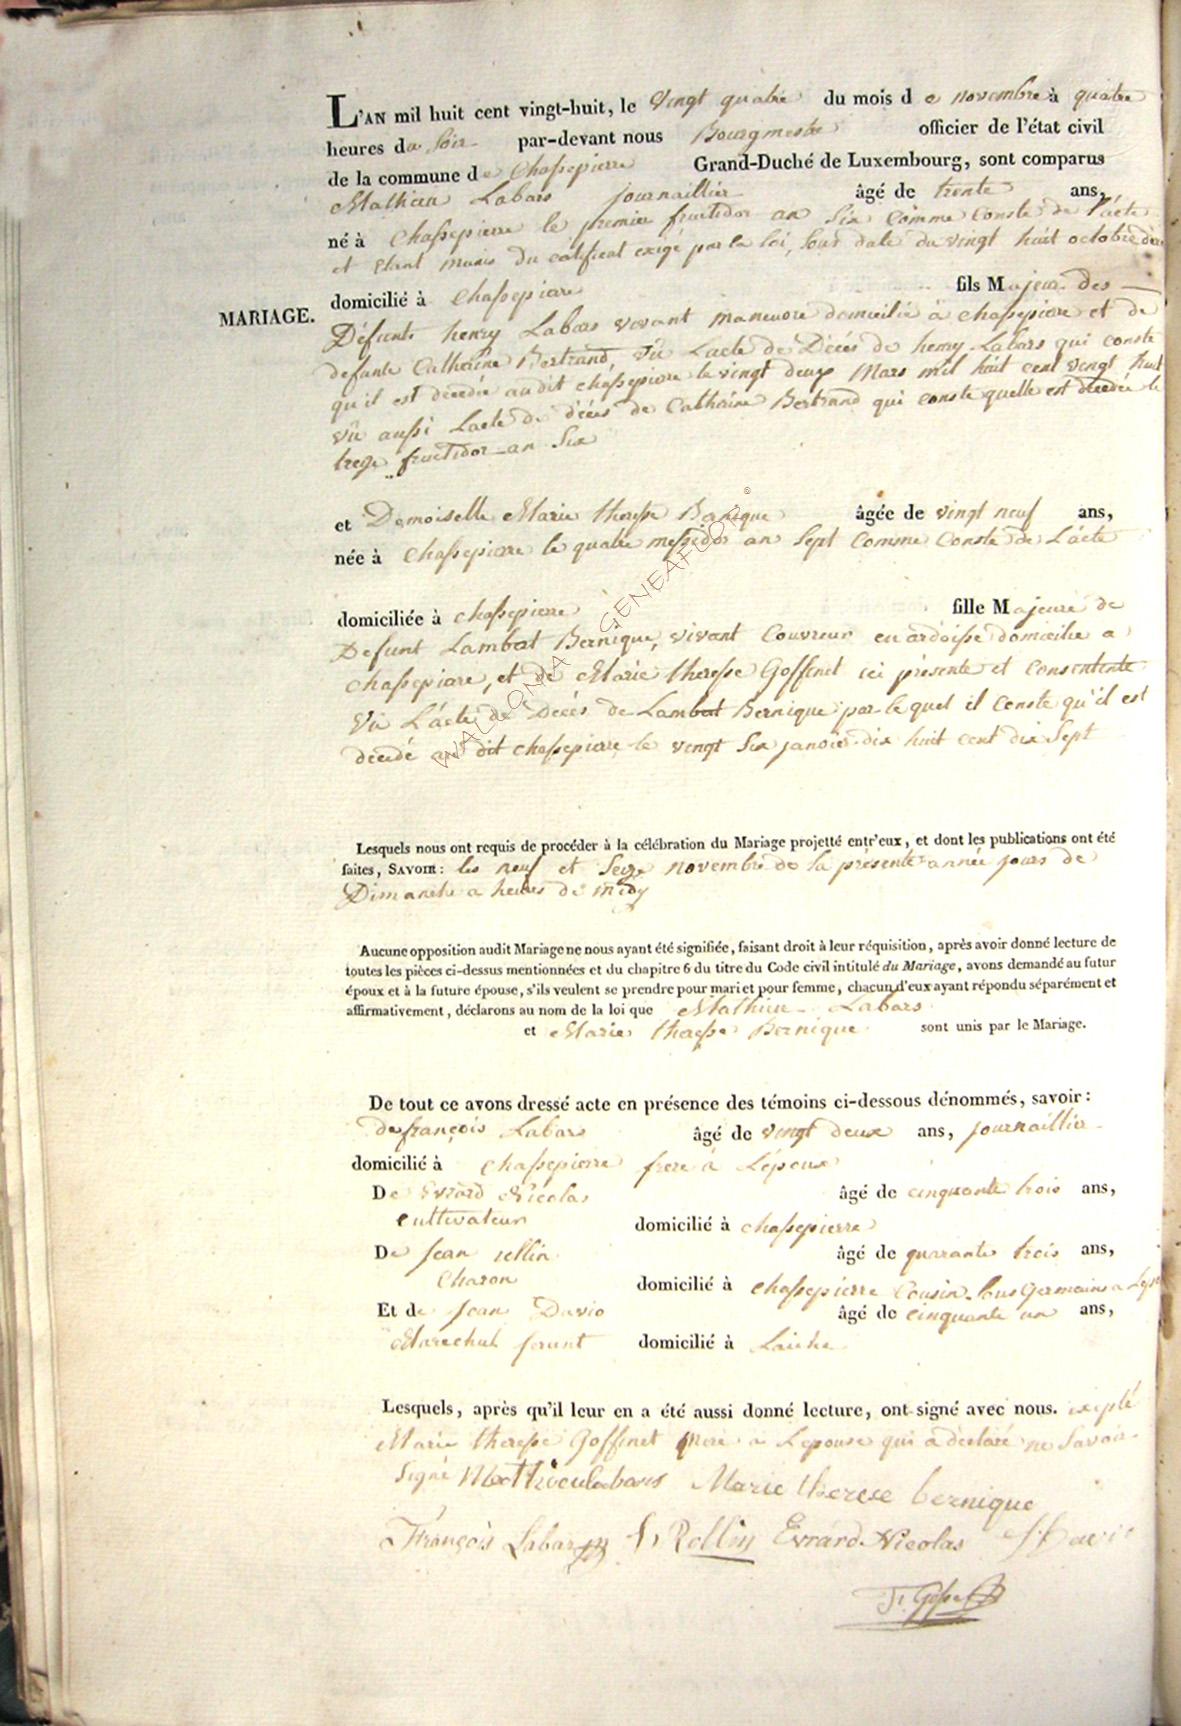 L'AN mil huit cent vingt-huit, le vingt quatre du mois de novembre à quatre
heures du soir par-devant nous Bourgmestre officier de l'état civil
de la commune de Chassepierre Grand-Duché de Luxembourg, sont comparus
Mathieu Labars journaillier âgé de trente ans,
né à Chassepierre le premier fructidor an six comme conste de l'acte
et étant munis du certificat exigé par la loi, sous date du vingt huit octobre
domicilié à Chassepierre fils Majeur des
MARIAGE.
Défunts henry Labars vivant maneuvre domicilié à chassepierre et de
défunte Catherine Bertrand, vû Lacte de Décés de henry Labars qui conste
qu'il est décédé audit chassepierre le vingt deux Mars mil huit cent vingt huit
vû aussi Lacte de décés de Catherine Bertrand qui conste quelle est décédée le
treize fructidor an Six
et Demoiselle Marie therese Bernique âgée de vingt neuf ans,
née à Chassepierre le quatre messidor an sept comme conste de L'acte
domiciliée à chassepierre fille Majeure de
Défunt Lambert Bernique, vivant Couvreur en ardoisse domicilié a
chassepierre, et de Marie therese Goffinet ici présente et consentente
Vû L'acte de Décés de Lambert Bernique par lequel il conste qu'il est
décédé au dit chassepierre le vingt six janvier dix huit cent dix sept
Lesquels nous ont requis de procéder à la célébration du Mariage projetté entr'eux, et dont les publications ont été
faites, SAVOIR: les neuf et Seize novembre de la présente année jours de
Dimanche a heures de midy
Aucune opposition audit Mariage ne nous ayant été signifiée, faisant droit à leur réquisition, après avoir donné lecture de
toutes les pièces ci-dessus mentionnées et du chapitre 6 du titre du Code civil intitulé du Mariage, avons demandé au futur
époux et à la future épouse, s'ils veulent se prendre pour mari et pour femme, chacun d'eux ayant répondu séparément et
affirmativement, déclarons au nom de la loi que Mathieu Labars
et Marie therese Bernique sont unis par le Mariage.
De tout ce avons dressé acte en présence des témoins ci-dessous dénommés, savoir:
de françois Labars âgé de vingt deux ans, journaillier
domicilié à Chassepierre frere à Lépoux
De Evrard Nicolas âgé de cinquante trois ans,
cultivateur domicilié à chassepierre
De Jean âgé de quarante trois ans,
Charon domicilié à chassepierre Cousin sous Germains a
Et de Jean Davio âgé de cinquante un ans,
Marechal domicilié à Laiche
Lesquels, après qu'il leur en a été aussi donné lecture, ont signé avec nous. excepté
Marie therese Goffinet mere a Lepouse qui a déclaré ne savoir
signé Mathieu labars Marie therese bernique
François Labars J. Rollin Evrard Nicolas
WALLONIA GENEAFLOOR ©